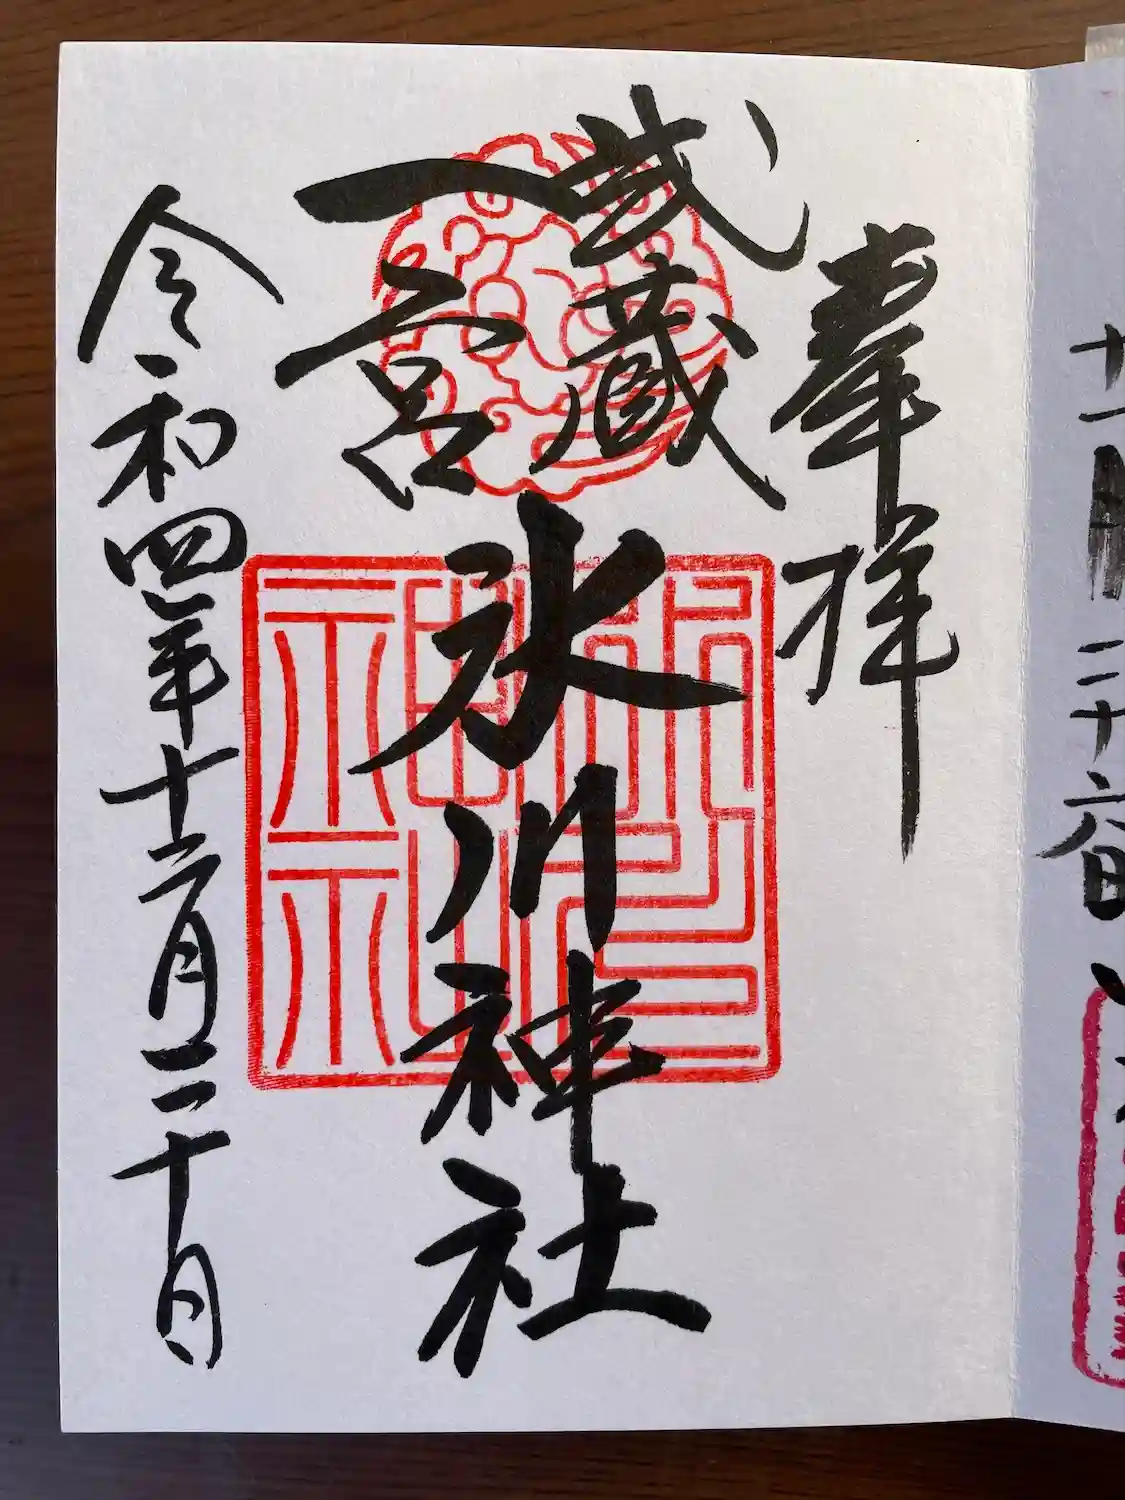 十一月二十六日
奉拝
武蔵
一宮
氷川神社
令和四年十二月二十日